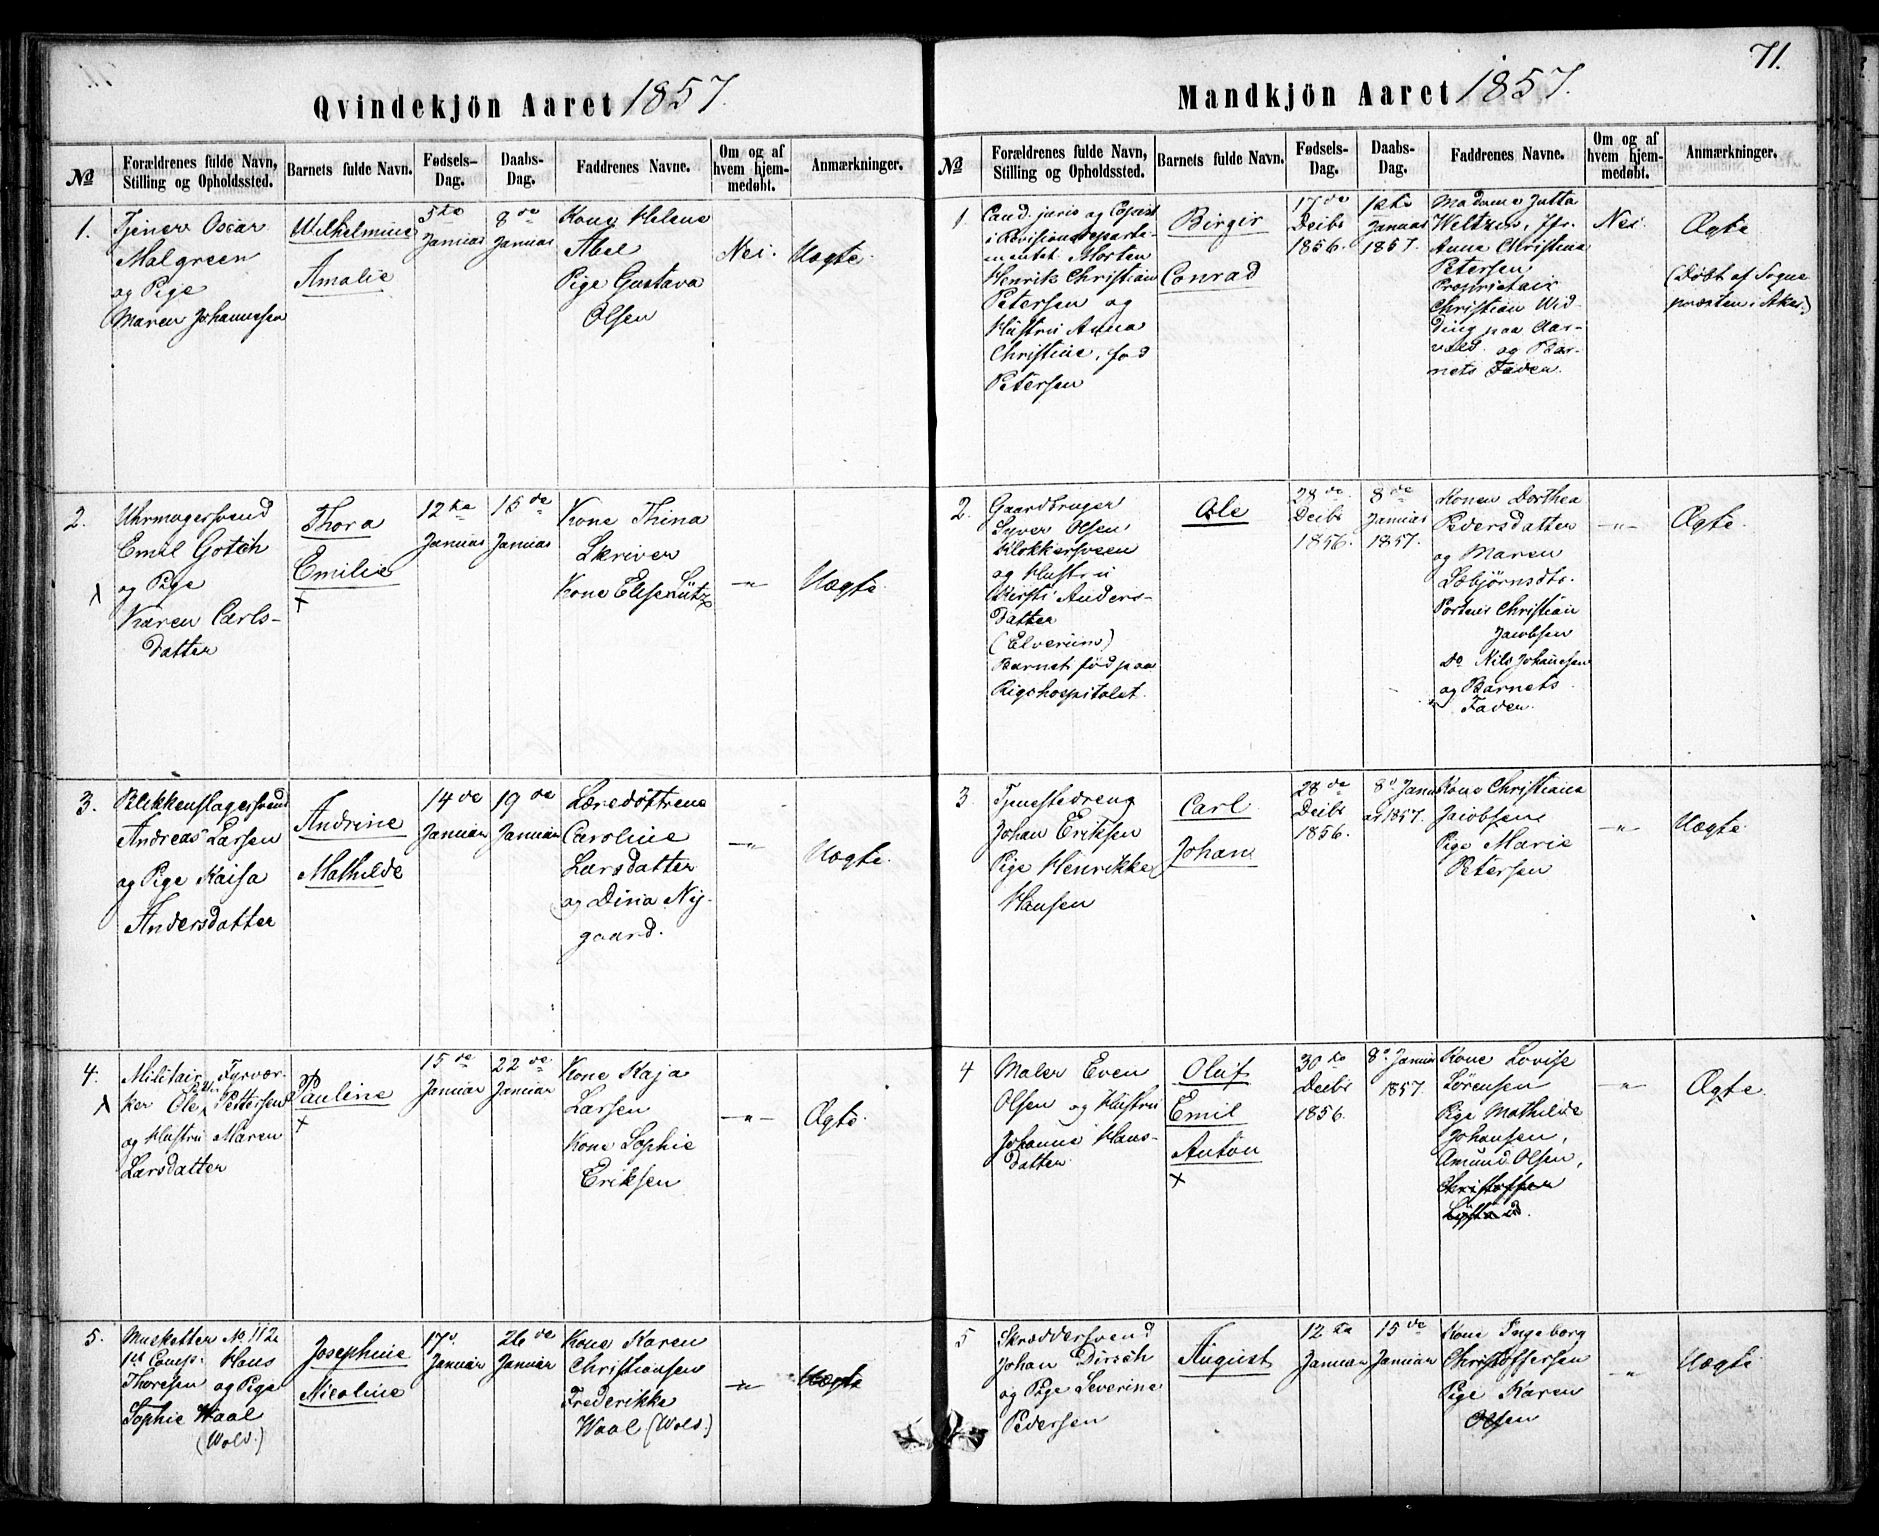 71.
Qvindekjön Aaret 1857.
№
Forældrenes fulde Navn,
Stilling og Opholdssted.
Barnets fulde Navn.
Fødsels-
Dag.
Daabs-
Dag.
Faddrenes Navne.
Om og af
hvem hjem-
medøbt.
Anmærkninger.
1.
Tjener Oscar
Malgreen
og Pige
Maren Johannesen
Wilhelmine
Amalie
5te
Januar
8de
Januar
Kone Helene
Abel
Pige Gustava
Olsen
Nei.
Uægte.
2.
Uhrmagersvend
Emil Gotch
og Pige
Karen Carls-
datter
Thora
Emilie
12te
Januar
15de
Januar
Kone Thina
Skriver
Kone Elise Lütz
—"—
Uægte.
3.
Blikkenslagersvend
Andreas Larsen
og Pige Kaisa
Andersdatter
Andrine
Mathilde
14de
Januar
19de
Januar
Læredøttrene
Caroline
Larsdatter
og Dina Ny-
gaard.
—"—
Uægte.
4.
Militair Fyrvær-
ker Ole Pettersen
og Hustru Maren
Larsdatter
Pauline
15de
Januar
22de
Januar
Kone Kaja
Larsen
Kone Sophie
Eriksen
—"—
Ægte.
5.
Musketter No 112
1st Comp. Hans
Thoresen og Pige
Sophie Waal
(Wold.)
Josephine
Nicoline
17d
Januar
26de
Januar
Kone Karen
Christiansen
Frederikke
Waal (Wold.)
—"—
Uægte
Mandkjön Aaret 1857.
№
Forældrenes fulde Navn,
Stilling og Opholdssted.
Barnets fulde Navn.
Fødsels-
Dag.
Daabs-
Dag.
Faddrenes Navne.
Om og af
hvem hjem-
medøbt.
Anmærkninger.
1.
Cand. juris og Copist
i Revisionsdeparte-
mentet Morten
Henrik Christian
Petersen og
Hustru Anna
Christine, fød
Petersen
Birgir
Conrad
17de
Decbr
1856.
1ste
Januar
1857.
Madame Jutta
Weltzin, Jfr.
Anna Christina
Petersen
Proprietair
Christian Wid-
ding paa Aar-
vold og Bar-
nets Fader.
Nei.
Ægte
(Døbt af Sogne
præsten i Aker.)
2.
Gaardbruger
Syver Olsen
Klokkersveen
og Hustru
Kirsti Anders-
datter
(Elverum)
Barnet født paa
Rigshospitalet.
Ole
28de
Decbr
1856.
8de
Januar
1857.
Konen Dorthea
Pedersdatter
og Maren
Sæbjørnsdtr.
Portner Christian
Jacobsen
Do Nils Johannesen
og Barnets
Fader.
—"—
Ægte.
3.
Tjenestedreng
Johan Eriksen
Pige Henrikke
Hansen
Carl
Johan
28de
Decbr
1856.
8d Janu
ar 1857.
Kone Christiana
Jacobsen
Pige Marie
Petersen
—"—
Uægte.
4
Maler Even
Olsen og Hustru
Johanne Hans-
datter
Oluf
Emil
Anton
30te
Decbr
1856.
8de Januar
1857.
Kone Lovise
Sørensen
Pige Mathilde
Johansen,
Amund Olsen,
Christoffer
—"—
Ægte.
5
Skræddersvend
Johan Dirsch
og Pige Severine
Pedersen
August
12te
Januar
15de
Januar
Kone Ingeborg
Christoffersen
Pige Karen
Olsen
—"—
Uægte